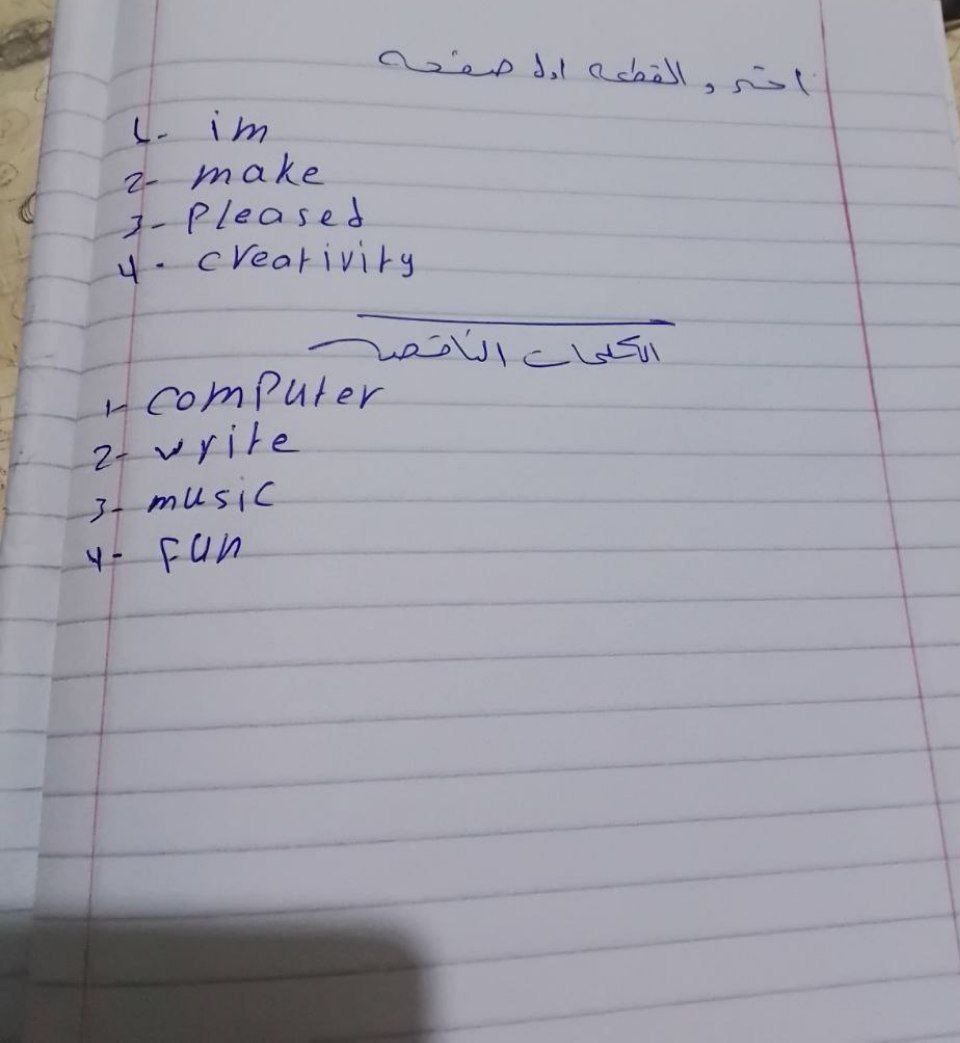 اختر و القطعه اول صفحه
1- im
2- make
3- Pleased
4- creativity
الكلمات الناقصه
1- comPuter
2- write
3- music
4- Fun